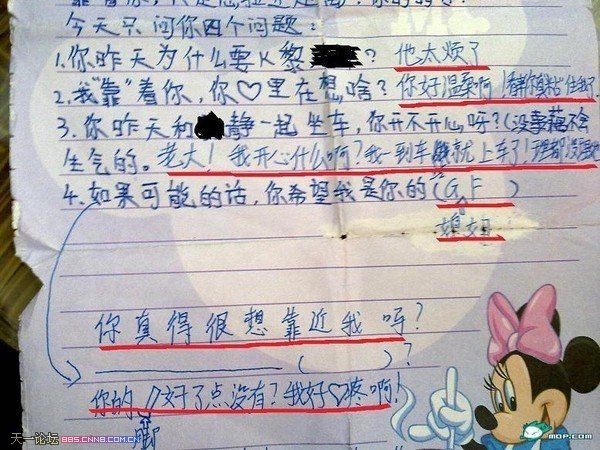 今天只问你四个问题:
1.你昨天为什么要K黎? 他太烦了
2.我"靠"着你,你♡里在想啥?你好温柔啊!
3.你昨天和静一起坐车,你开不开心呀?(没拿
生气的。老大!我开心什么啊?我一到车就上车了!
4.如果可能的话,你希望我是你的(GF)
媳妇
你真得很想靠近我呀?
( )?
你的好了点没有?我好♡疼啊!
脚
天一论坛 BBS.CNNB.COM.CN
MOP.COM